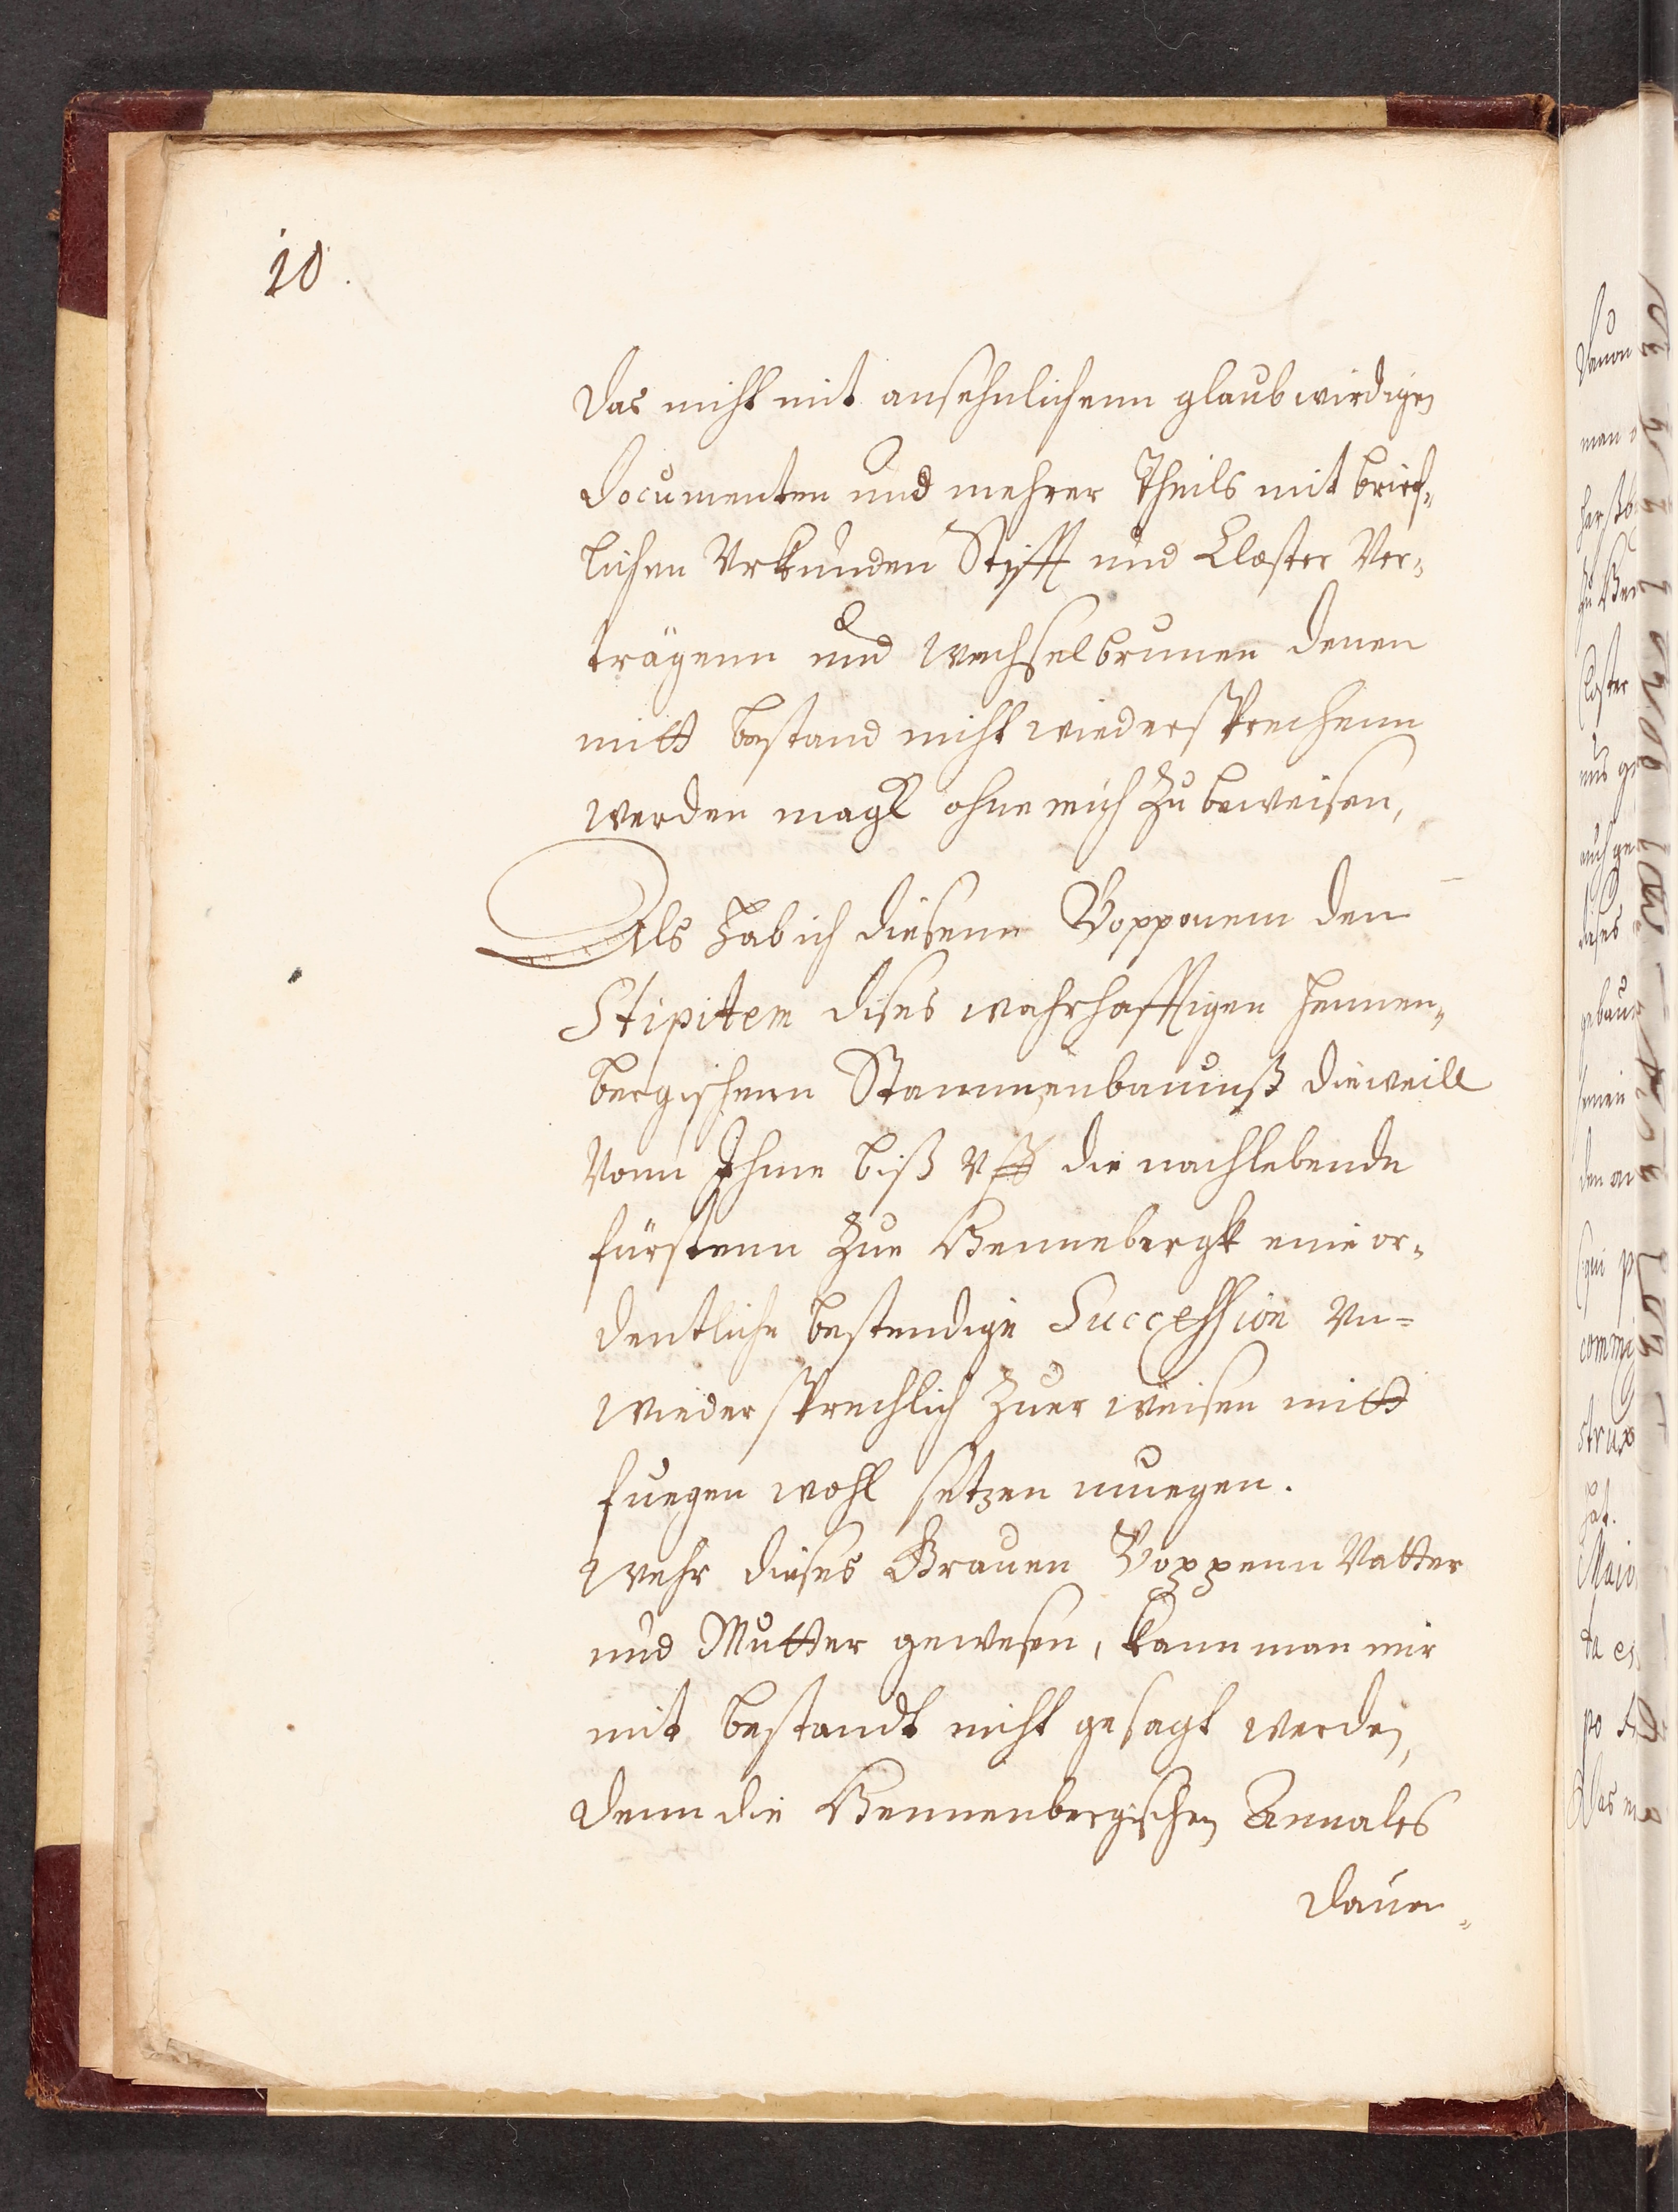 10.
das nicht mit ansehnlichenn glaubwirdigen
documenten und mehrer Theils mit brieff„
lichen Urkunden Stifft und Closter Ver„
trägenn und wechselbrunen denen
mitt bestand nicht wiedersprechenn
werden magk ohne mich zu beweisen,
Als hab ich diesenn Bopponem den
Stipitem dises wahrhafftigen Hennen„
bergischenn Stammenbaumß dieweill
Vonn Ihme biß uff die nachlebende
fürstenn zue Hennebergk eine or„
dentliche bestendige Succession un=
wiedersprechlich zuerweisen mitt
fuegen wohl setzen muegen.
Wehr dieses Grauen Boppenn Vatter
und Mutter gewesen, kann man mir
mit bestandt nicht gesagt werden,
denn die Hennenbergischen Annales
dauon„